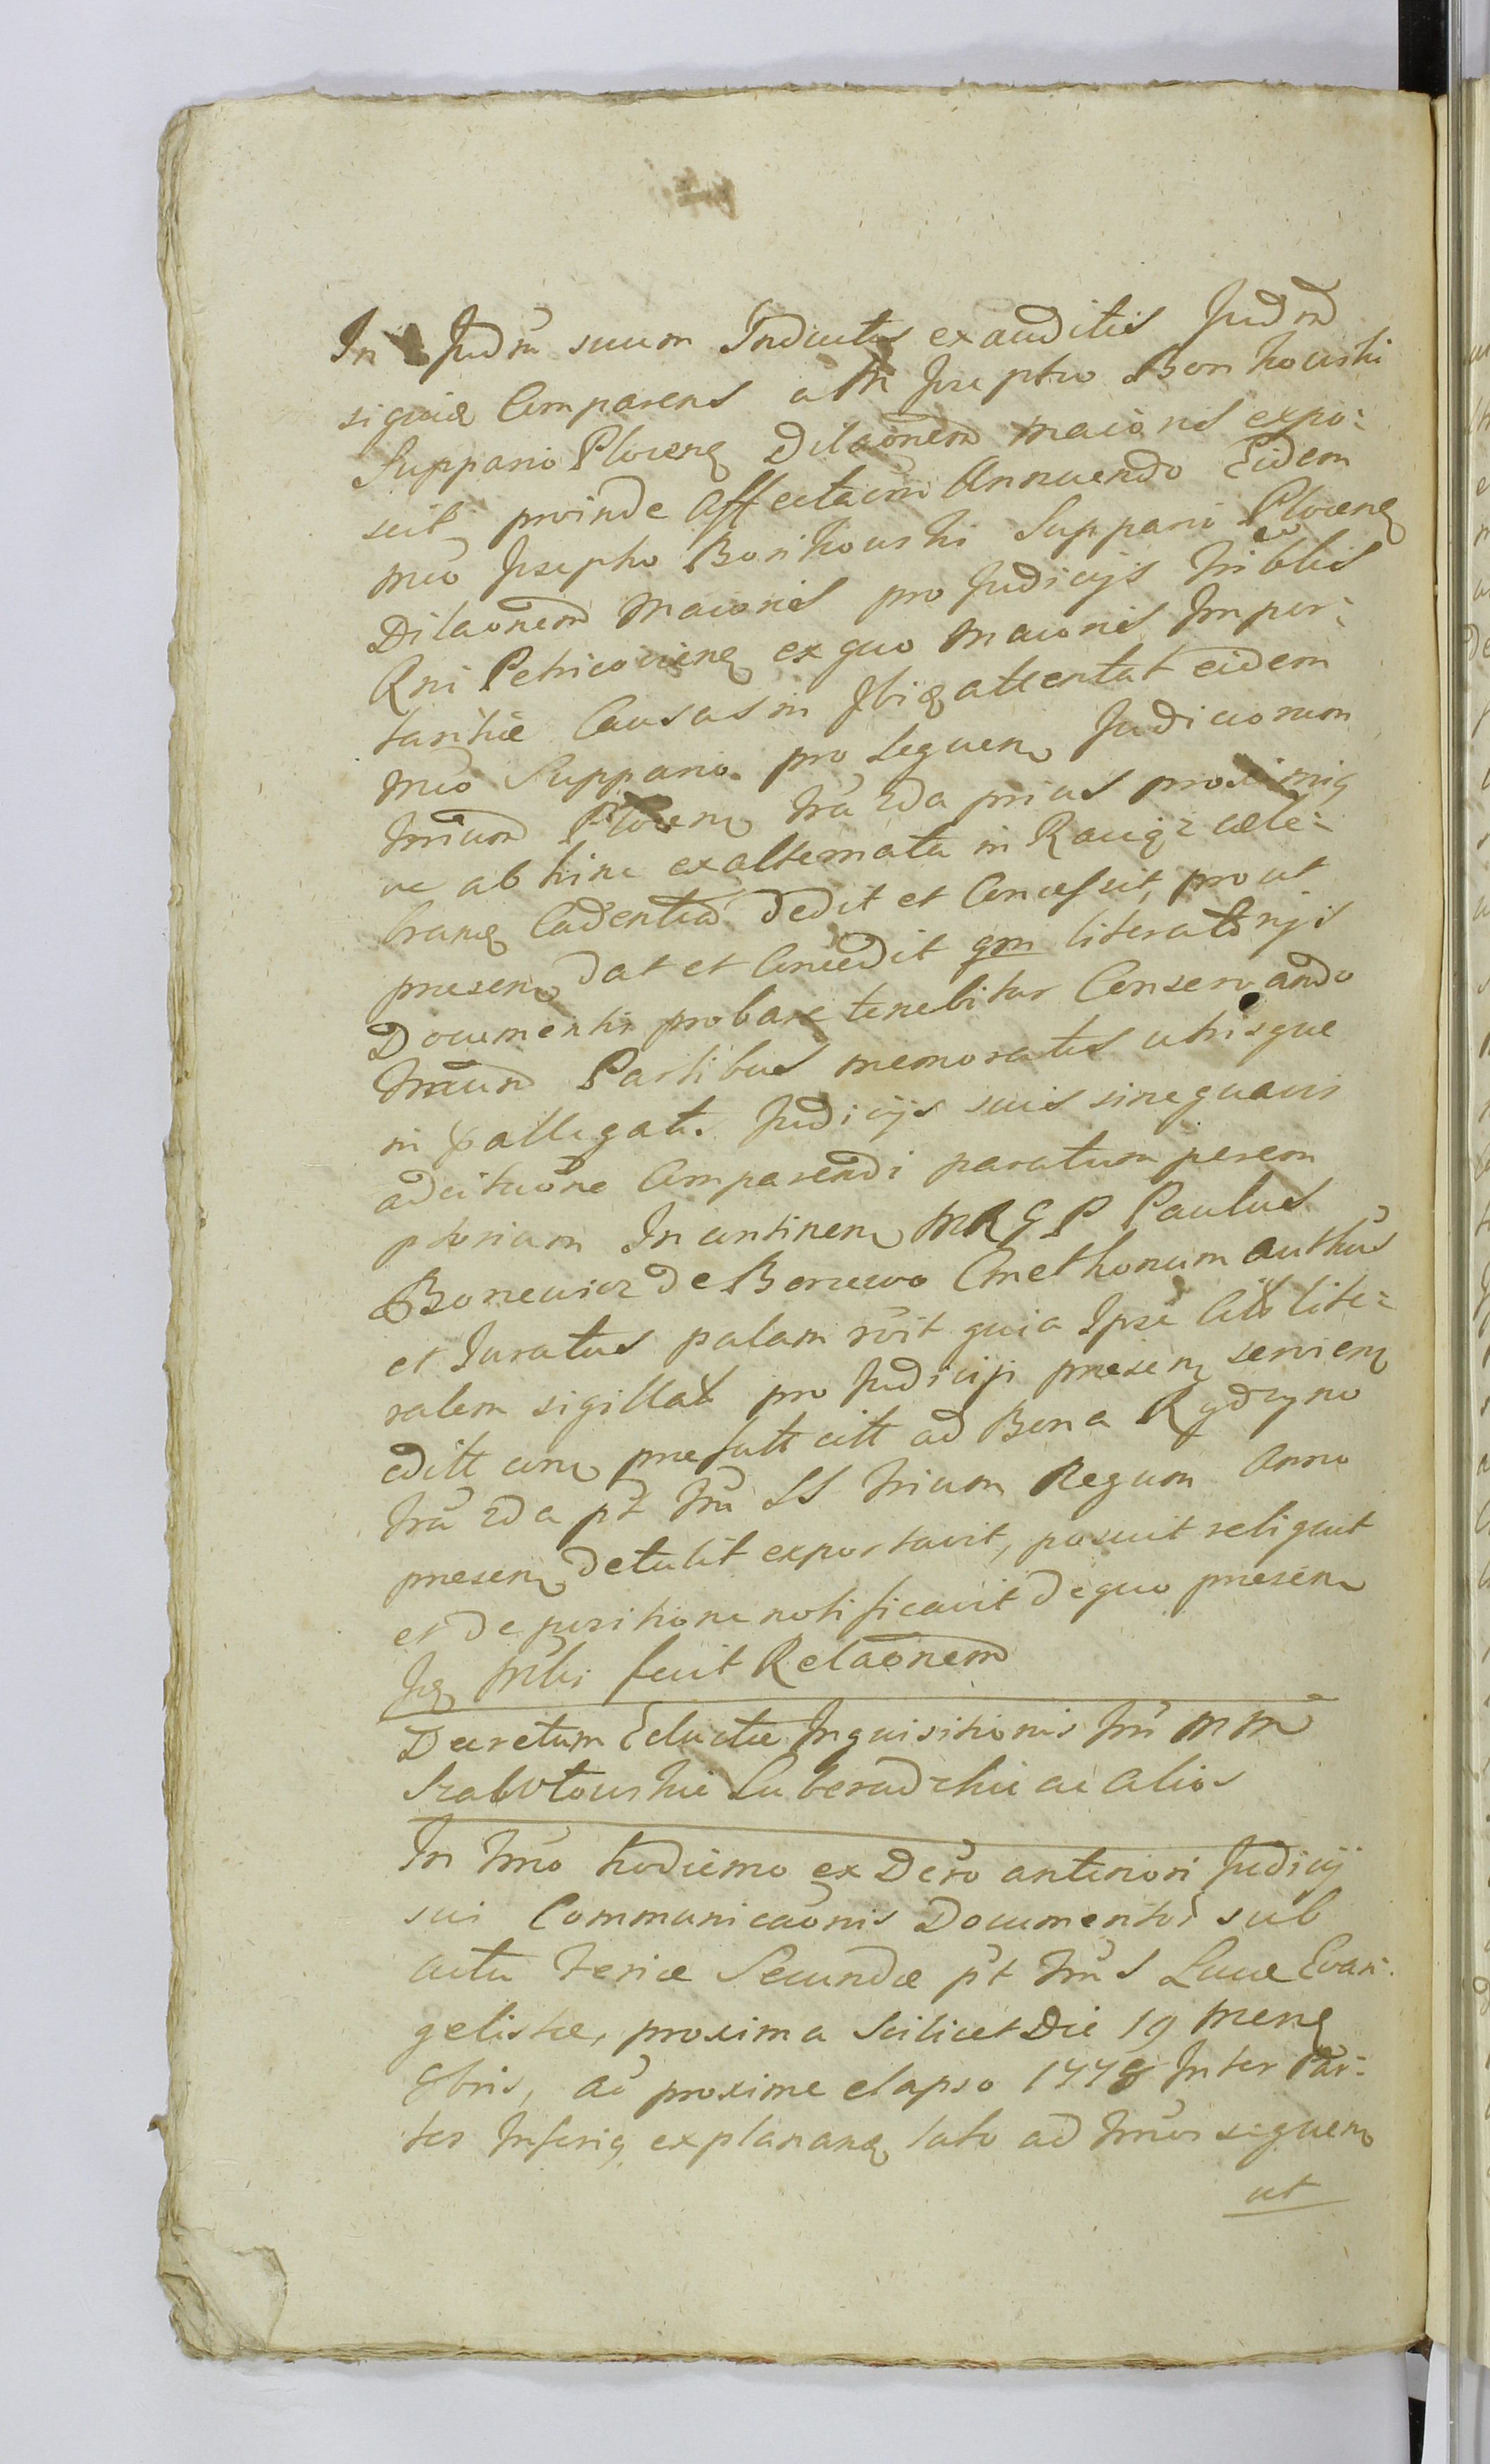 In Judm suum Inductis exauditis Judm
siquide Comparens a M Josepho Bonkowski
Suppario Plocen Dilaonem maioris expo:
scit, proinde affectaoni Annuendo Eidem
Mco Josepho Bonkowski Suppario Plocen
Dilaonem maioris pro Judicijs Triblis
Rni Petricovien ex quo maioris Impor:
tantiæ Causas in Ibiq attentat eidem
Mco Suppario pro sequen Judiciorum
Trium Plocen fra 2da prius proximiq
ve abhinc ex alternata in Raciąż cele:
bran Cadentia dedit et Concessit, prout
presen dat et Concedit qm literatorijs
Documentis probare tenebitur Conservando
Trium Partibus memoratis utrisque
in pallegat. Judicijs suis sine quavis
adcitaone Comparendi paratum perem
ptorium In continen MRGP Paulus
Boncewicz de Boncewo Cmethonum authus
et Juratus palam rvit quia Ipse Citt lite:
ralem sigillat pro Judicijs presen servien
editt cum prefatt citt ad Bona Rydzyno
fra 2da pt fm SS Trium Regum Anno
presen detulit exportavit, posuit reliquit
et de positione notificavit de quo presen
Jq Mbi fecit Relaonem
Decretum Eductæ Inquisitionis Inr MM
Szabłtowskie Luberadzkie ac alios
In Trno hodierno ex Dero anteriori Judicij
sui Communicaonis Documentor sub
actu Feriæ Secundæ pt fm S Lucæ Evan:
gelistæ, proxima scilicet Die 19 Men
8bris, ao proxime elapso 1778 Inter Par:
tes Inferiq explanan lato ad Trnos sequen
ut